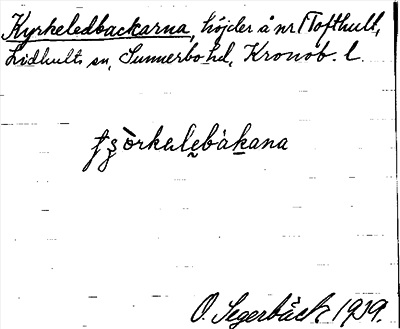 Kyrkeledbackarna, höjder å nr 1 Tofthult,
Lidhults sn, Sunnerbo hd, Kronob. l.
O. Segerbäck 1929.